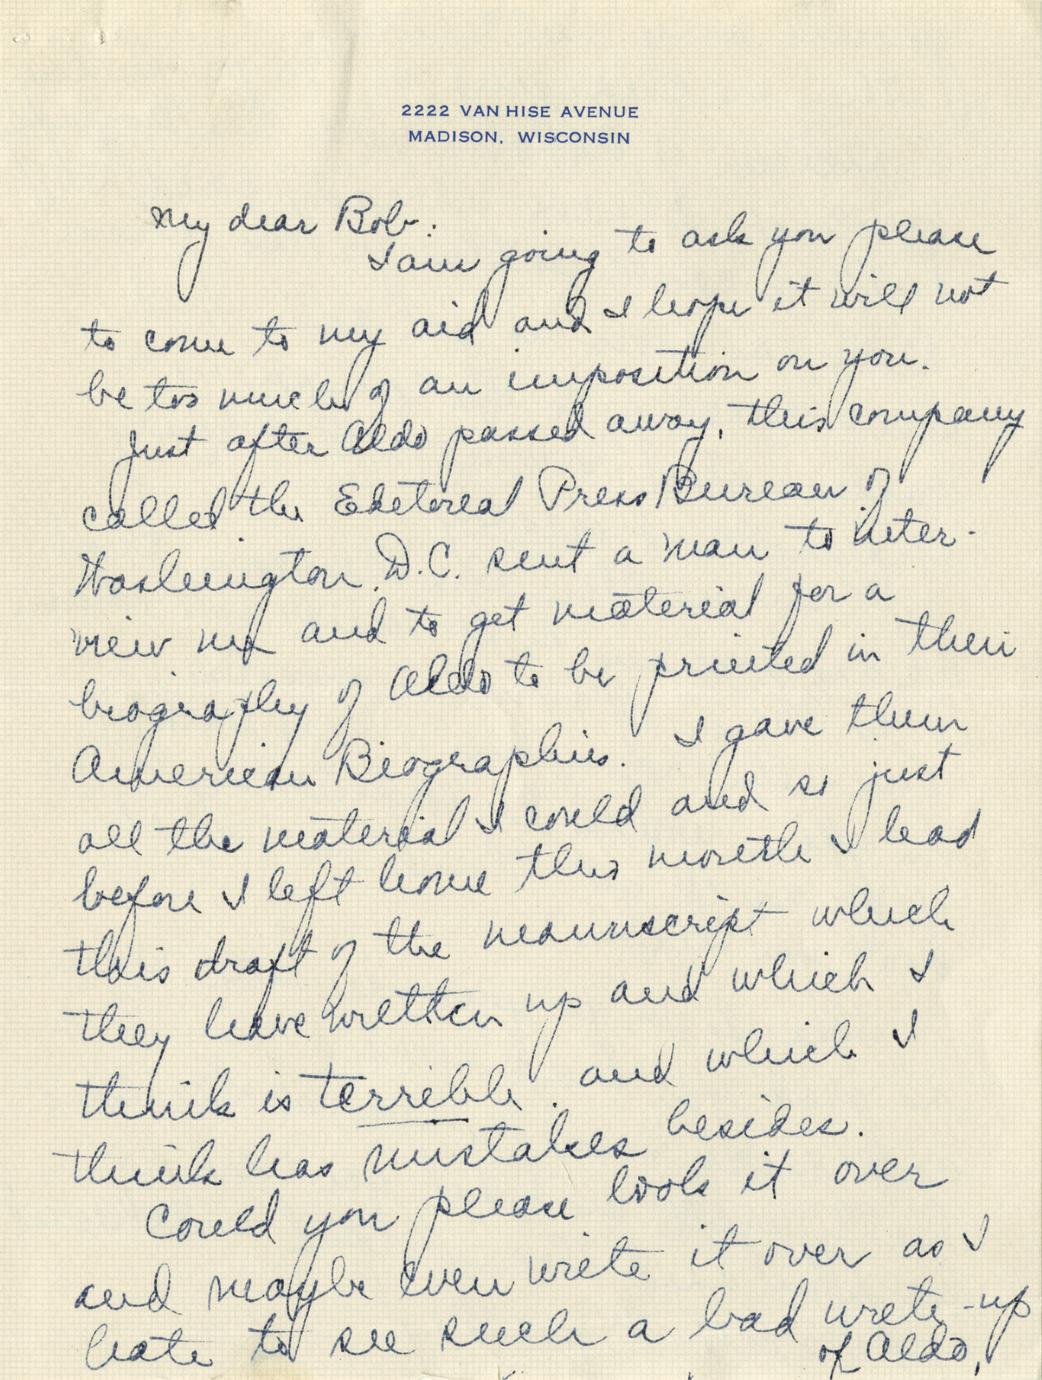 2222 VAN HISE AVENUE
MADISON, WISCONSIN
My dear Bob:
I am going to ask you please
to come to my aid and I hope it will not
be too much of an imposition on you.
Just after Aldo passed away, this company
called the Editorial Press Bureau of
Washington D.C. sent a man to inter-
view me and to get material for a
biography of Aldo to be printed in their
American Biographies. I gave them
all the material I could and so just
before I left home this month I had
this draft of the manuscript which
they have written up and which I
think is terrible. and which I
think has mistakes besides.
Could you please look it over
and maybe even write it over as I
hate to see such a bad write-up
of Aldo.